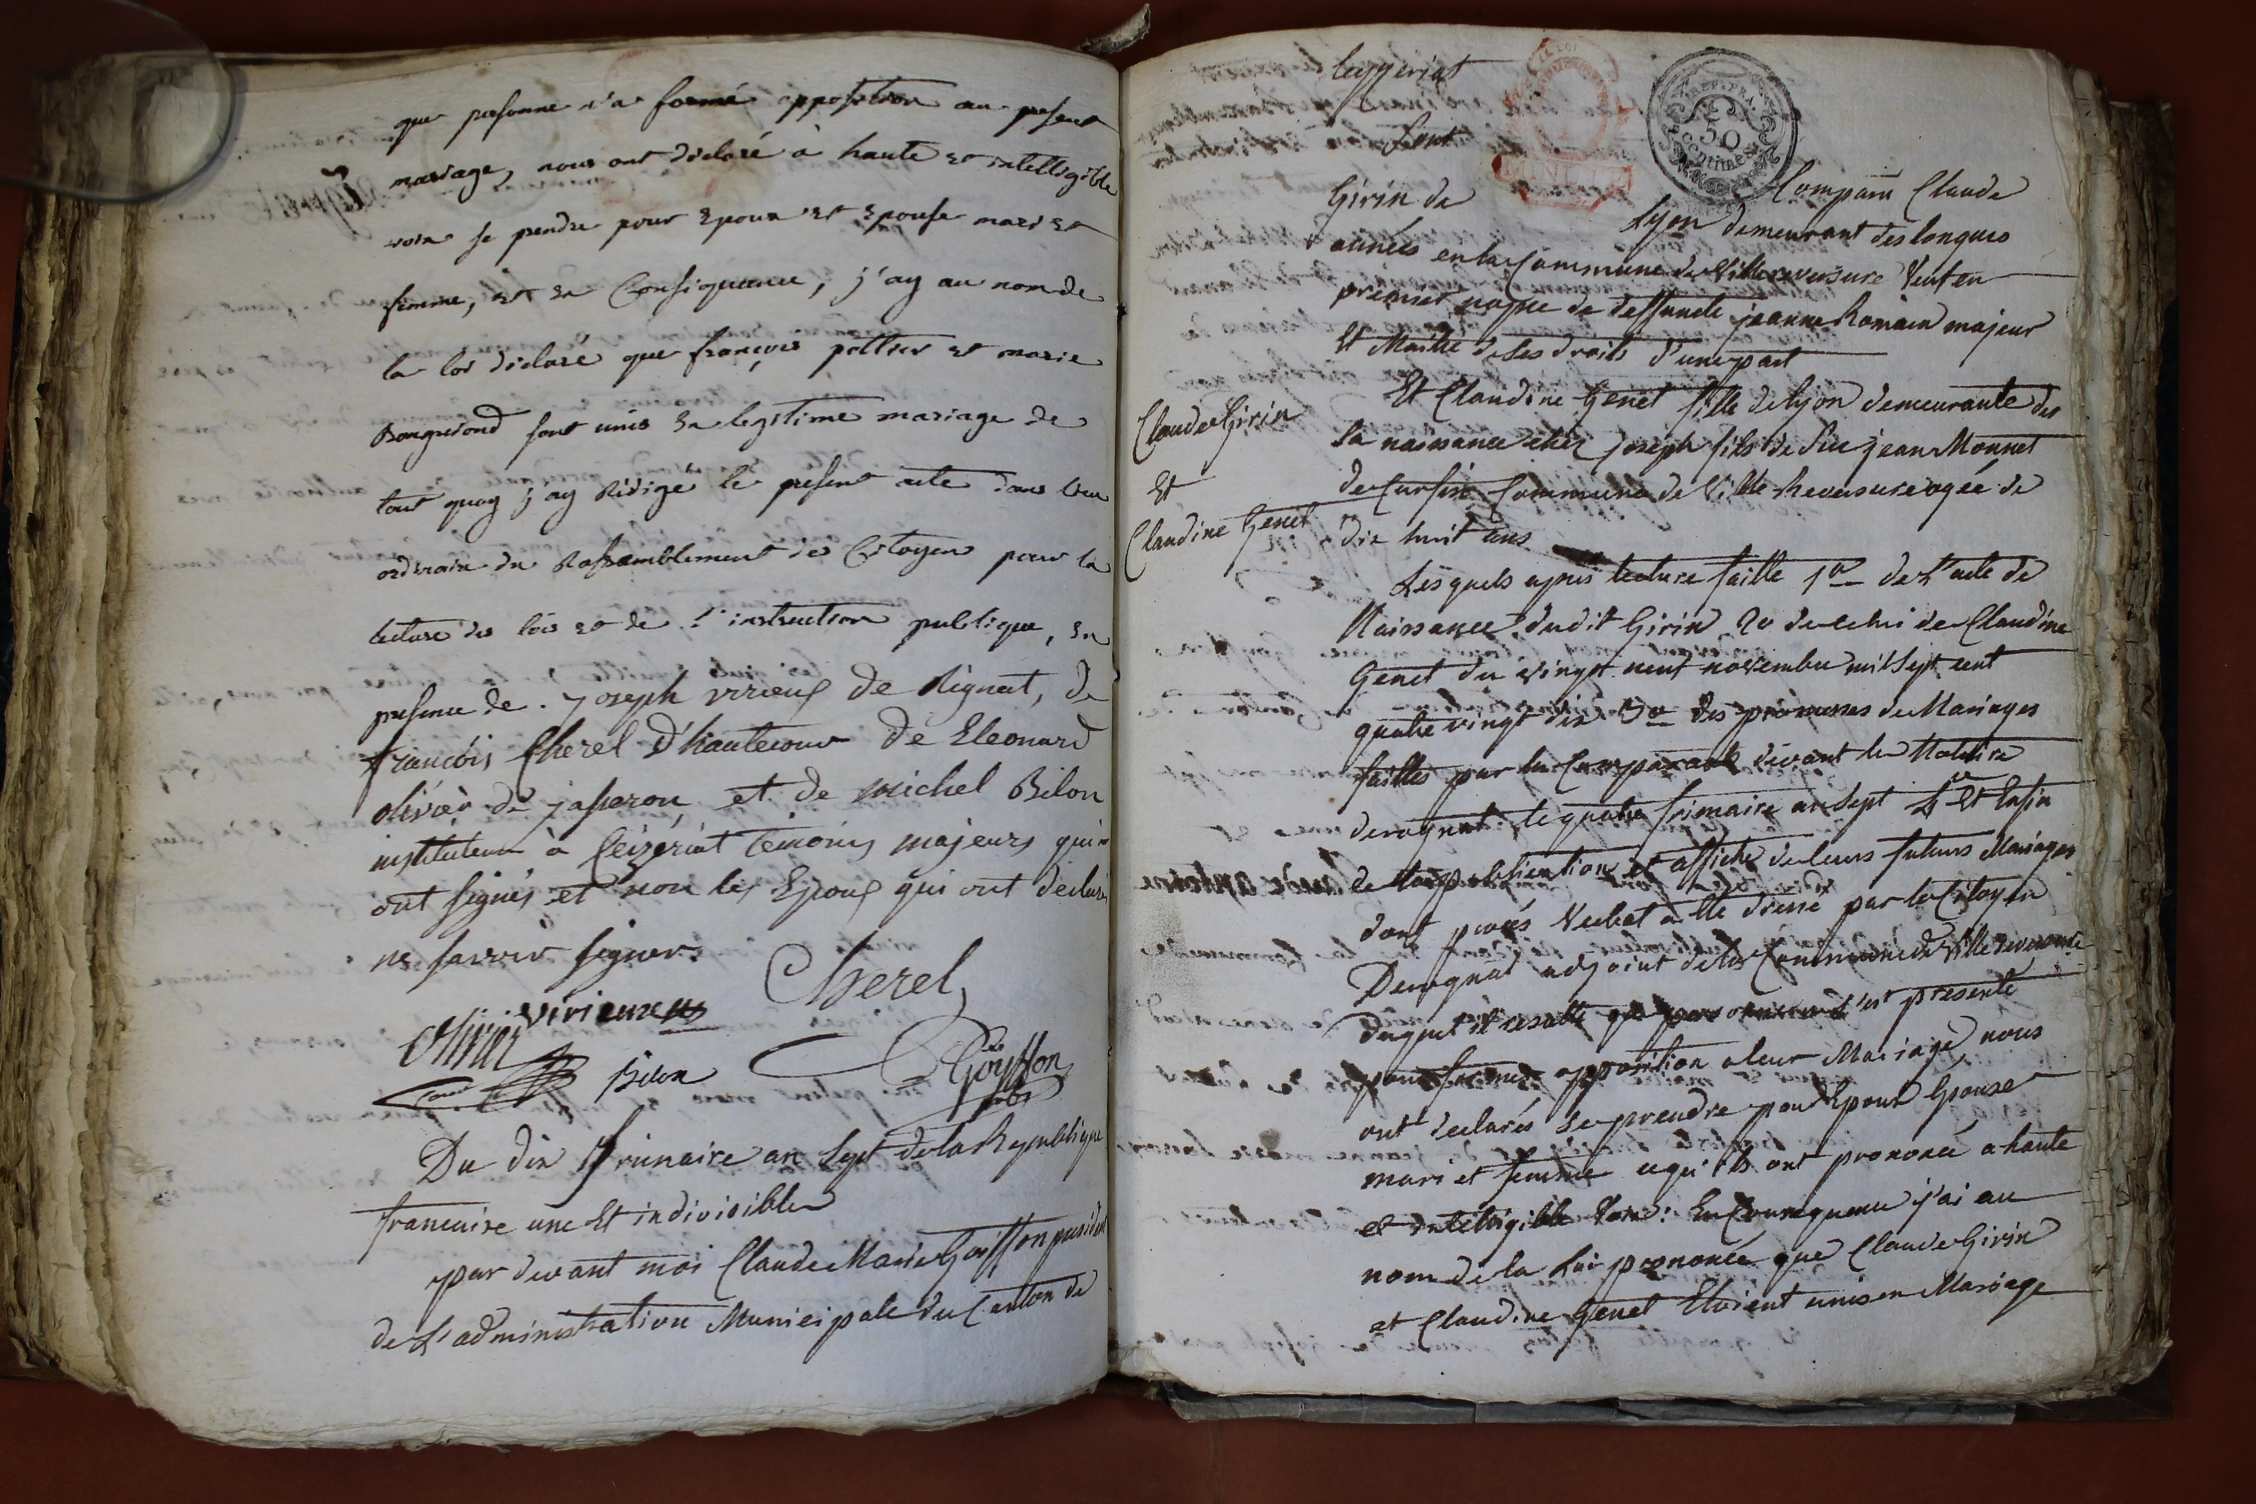 que personne n'a formé opposition au present
mariage, nous ont déclaré à haute et intelligible
voix se prendre pour epoux et epouse mari et
femme, et en Consequence, j'ay au nom de
la loi déclaré que françois pottier et marie
Bonguerond sont unis en legitime mariage de
tout quoy j'ay Rédigé le present acte dans le lieu
ordinaire du Rassemblement des Citoyens pour la
lecture des lois et de l'instruction publique, en
presence de joseph virieux de Rignat, de
françois Cherel d'hautecour de Eleonard
olivier de jasseron, et de michel Bilon
instituteur à Ceizériat temoins majeurs qui
ont signés et non les Epoux qui ont declarés
ne savoir signer.
Cherel
virieux
Olivier
Bilon
Goyffon
Du dix frimaire an Sept de la Republique
francaise une Et indivisible
par devant moi Claude Marie Goiffon president
de L'administration Municipale du Canton de
Ceyzeriat
Sont
Comparu Claude
Girin de Lyon demeurant des longues
années en la Commune de Villereversure Veuf en
premier nopce de deffuncte jeanne Romain majeur
Et Maitre de ses droits d'une part
Et Claudine Genet fille de Lyon demeurante des
Sa naissance chez joseph fils de feu jean Monnet
de Cursin Commune de Ville Reversure agée de
dix huit ans
Claude Girin
Et
Claudine Genet
Lesquels apres lecture faitte 1o de L'acte de
Naissance dudit Girin 2o de celui de Claudine
Genet du vingt neuf novembre mil Sept cent
quatre vingt dix 3o des promesses de Mariages
faittes par les Comparants devant le Notaire
derognat le quatre frimaire an Sept 4o Et Enfin
de la publication et affiche de leurs futurs Mariages
dont procés Verbal a été dressé par le Citoyen
Derognat adjoint de la Commune de Ville reversure
duquel il resulte que personne ne s'est presenté
pour former opposition a leur Mariage, nous
ont declarés Se prendre pour Epoux Epouse
mari et femme ce qu'ils ont prononcé a haute
et intelligible Voix: En Consequence j'ai au
nom de la Loi prononcé que Claude Girin
et Claudine Genet Etoient unis en Mariage
REP. FRA.
50
Centimes